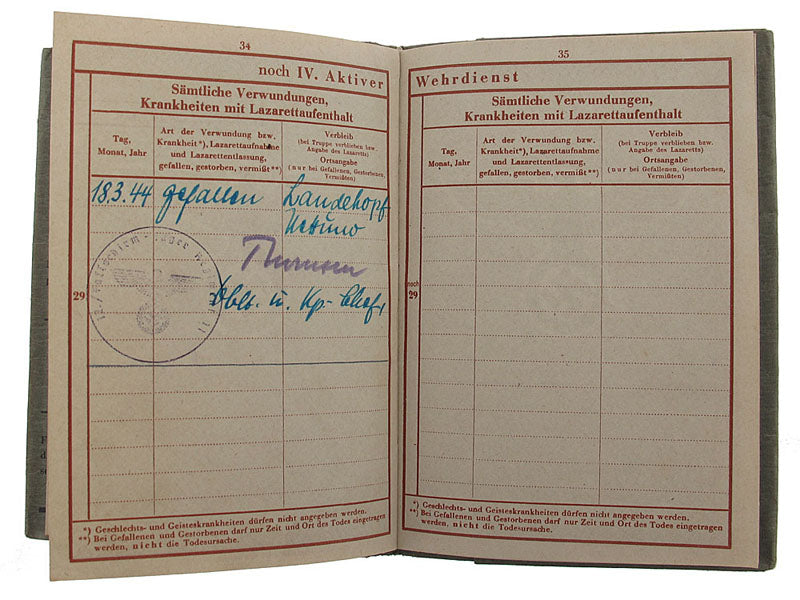 34
noch IV. Aktiver
Sämtliche Verwundungen,
Krankheiten mit Lazarettaufenthalt
Tag,
Monat, Jahr
Art der Verwundung bzw.
Krankheit*), Lazarettaufnahme
und Lazarettentlassung,
gefallen, gestorben, vermißt**)
Verbleib
(bei Truppe verblieben bzw.
Angabe des Lazaretts)
Ortsangabe
(nur bei Gefallenen, Gestorbenen,
Vermißten)
18.3.44 gefallen Landekopf
Nettuno
29
Oblt. u. Kp-Chef
*) Geschlechts- und Geisteskrankheiten dürfen nicht angegeben werden.
**) Bei Gefallenen und Gestorbenen darf nur Zeit und Ort des Todes eingetragen
werden, nicht die Todesursache.
35
Wehrdienst
Sämtliche Verwundungen,
Krankheiten mit Lazarettaufenthalt
Tag,
Monat, Jahr
Art der Verwundung bzw.
Krankheit*), Lazarettaufnahme
und Lazarettentlassung,
gefallen, gestorben, vermißt**)
Verbleib
(bei Truppe verblieben bzw.
Angabe des Lazaretts)
Ortsangabe
(nur bei Gefallenen, Gestorbenen,
Vermißten)
noch
29
*) Geschlechts- und Geisteskrankheiten dürfen nicht angegeben werden.
**) Bei Gefallenen und Gestorbenen darf nur Zeit und Ort des Todes eingetragen
werden, nicht die Todesursache.